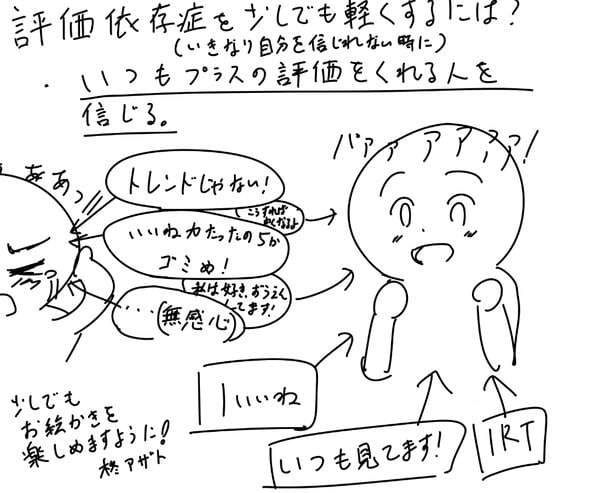 評価依存症を少しでも軽くするには?
(いきなり自分を信じれない時に)
・いつもプラスの評価をくれる人を
信じる。
ああっ
トレンドじゃない!
こうすれば
よくなるよ
いいねがたったの5か
ゴミめ!
私は好き、おうえん
してます!
…(無感心)
パァァァァァァ!
1いいね
いつも見てます!
1RT
少しでも
お絵かきを
楽しめますように!
柊アザト